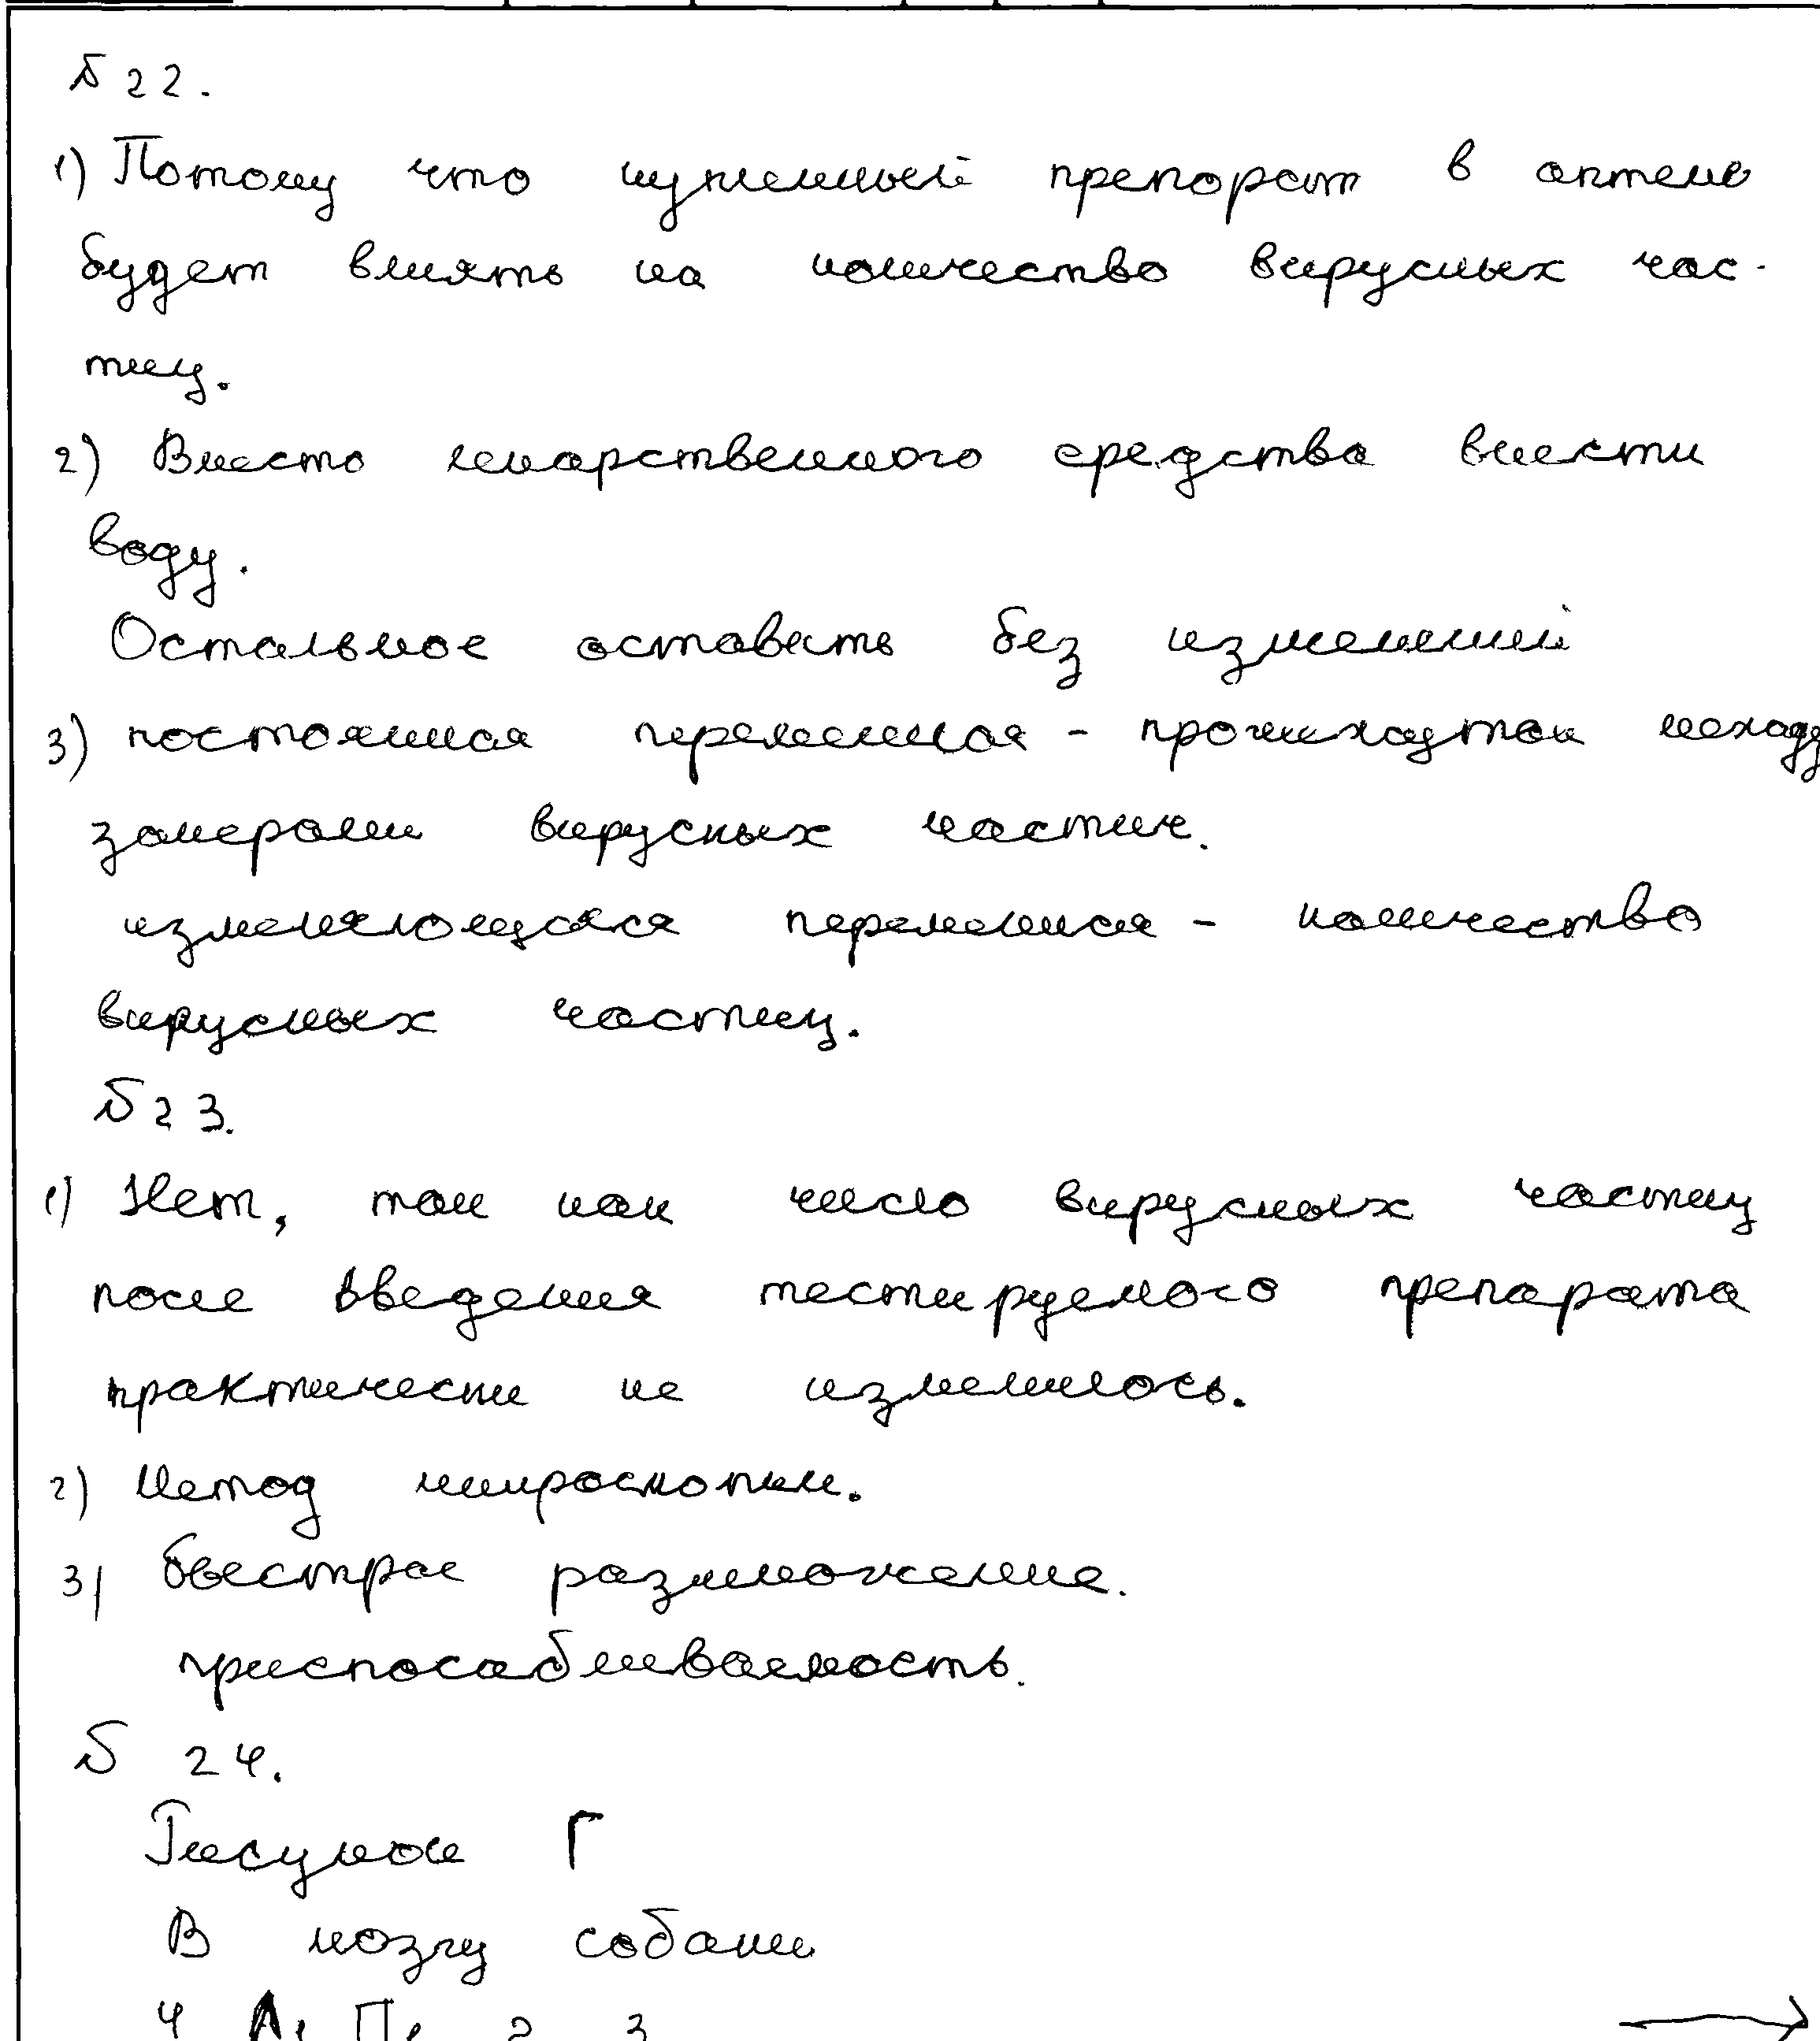 № 22.
1) Потому что нужный препарат в аптеке
будет влиять на количество вирусных час-
тиц.
2) Вместо лекарственного средства внести
воду.
Остальное оставить без изменений
3) постоянная переменная - промежуток между
замерами вирусных частиц.
изменяющаяся переменная - количество
вирусных частиц.
№ 23.
1) Нет, так как число вирусных частиц
после введения тестируемого препарата
практически не изменилось.
2) Метод микроскопии.
3) быстрое размножение.
приспосабливаемость.
№ 24.
Рисунок Г
В мозгу собаки